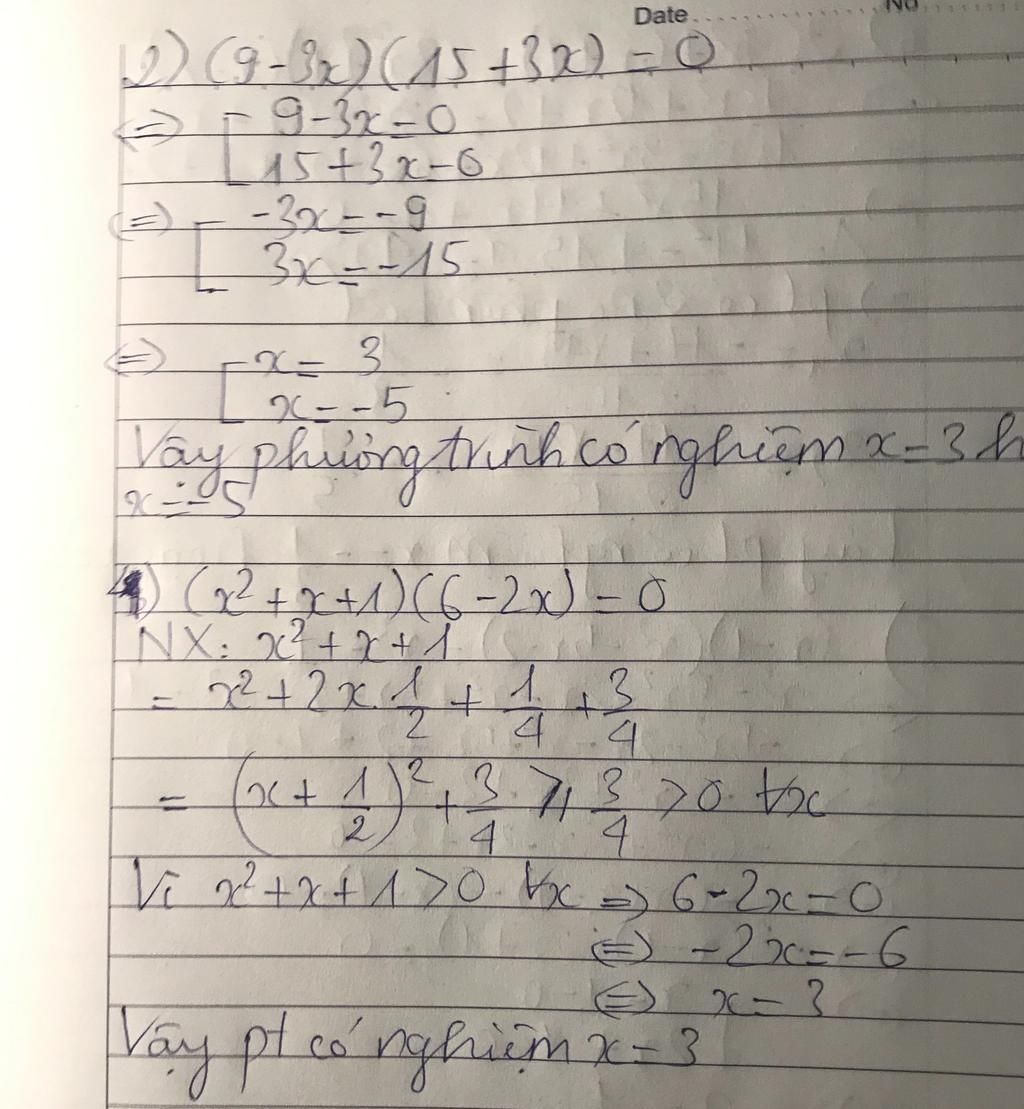 Date No
2) (9-3x)(15+3x) = 0
<=> [ 9-3x=0
15+3x=0
<=> [ -3x=-9
3x=-15
<=> [ x= 3
x=-5
Vậy phương trình có nghiệm x=3 h
x=-5
4) (x²+x+1)(6-2x) = 0
NX: x²+x+1
= x²+2x.1/2 + 1/4 + 3/4
= (x+1/2)² + 3/4 ⩾ 3/4 >0 ∀x
Vì x²+x+1>0 ∀x => 6-2x=0
<=> -2x=-6
<=> x=3
Vậy pt có nghiệm x=3